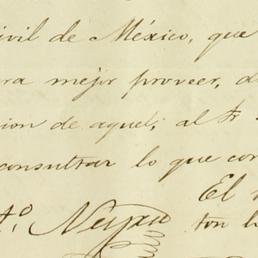 ivil de México, que
ra mejor proveer, d
cion de aquel; al tr
consultar lo que con
El
to. Neyra
ton